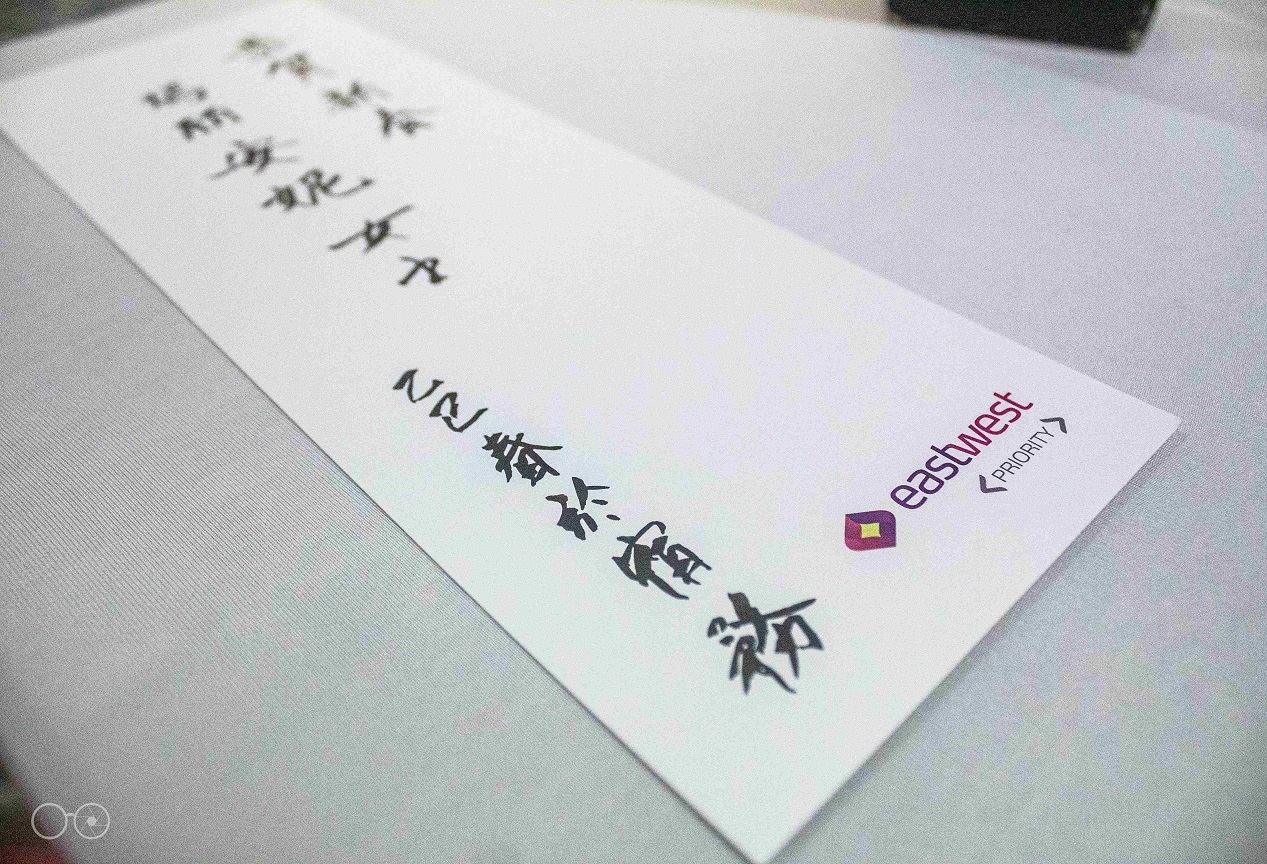 瑪麗安妮女士
乙巳春於宿務
eastwest
PRIORITY